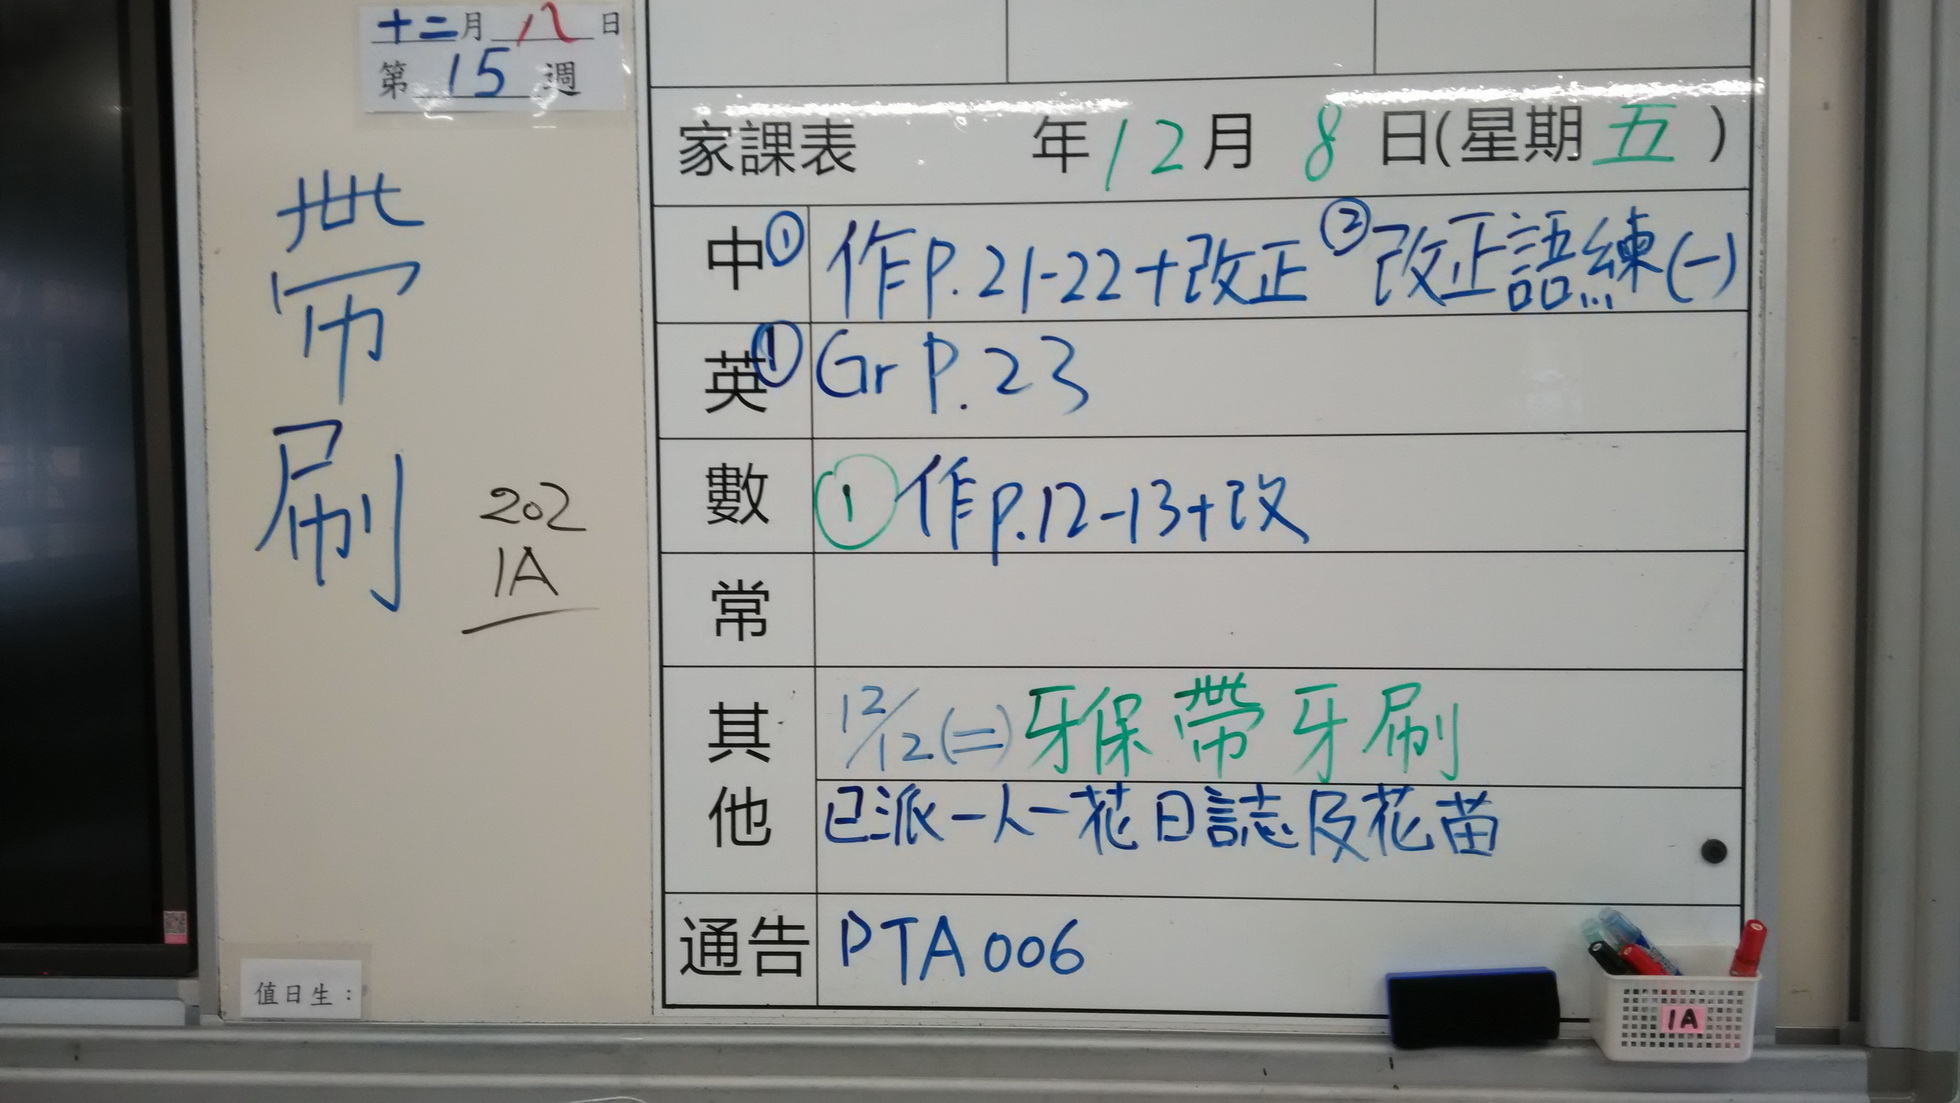 十二月八日
第15週
帶刷
202
1A
家課表 年12月8日(星期五)
中① 作P.21-22+改正 ②改正語練(一)
英① Gr P.23
數 ① 作P.12-13+改
常
其他 12/12(二)牙保帶牙刷
已派一人一花日誌及花苗
通告 PTA006
值日生:
1A